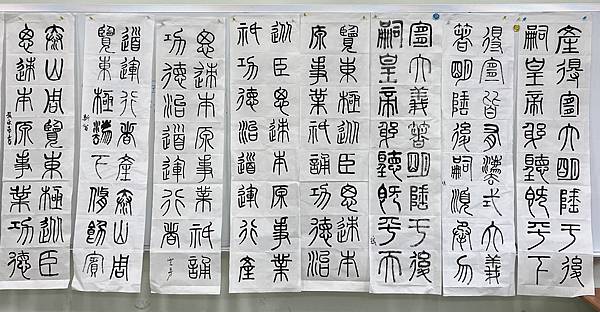 產得宜大明陲于後
嗣皇帝躬聽既平下
得宜皆有灋式大義
著明陲後嗣順承勿
宜大義著明陲于後
嗣皇帝躬聽既平天
覽東極巡臣思迹本
原事業祗誦功德治
巡臣思迹本原事業
祗功德治道運行產
思迹本原事業祗誦
功德治道運行者
道運行者產泰山周
覽東極灋下脩飭賓
泰山周覽東極巡臣
思迹本原事業功德